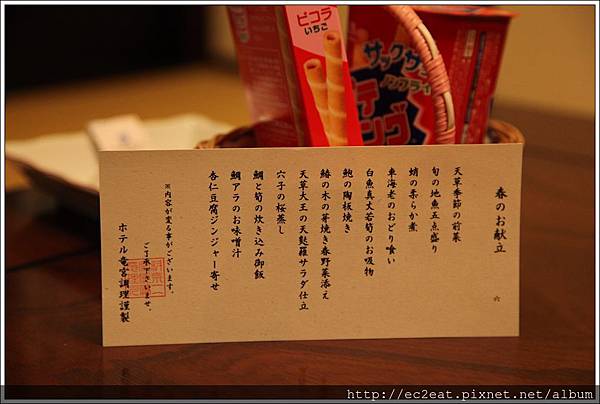 ピコラ
いちご
サックサク
ノンフライ
春のお献立
六
天草季節の前菜
旬の地魚五点盛り
蛸の柔らか煮
車海老のおどり食い
白魚真丈若筍のお吸物
鮑の陶板焼き
鰆の木の芽焼き春野菜添え
天草大王の天麩羅サラダ仕立
穴子の桜蒸し
鯛と筍の炊き込み御飯
鯛アラのお味噌汁
杏仁豆腐ジンジャー寄せ
※内容が変る事がございます。
ご了承下さいませ。
ホテル竜宮調理謹製
http://ec2eat.pixnet.net/album